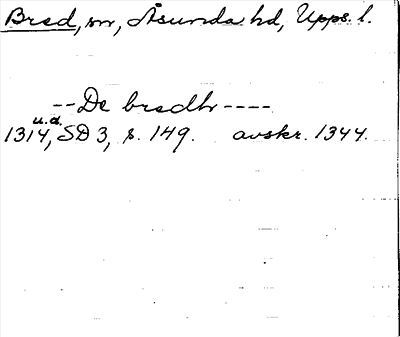 Bred, sn, Åsunda hd, Upps. l.
-- De bredhr ----
u.d.
1314, SD 3, s. 149. avskr. 1344.